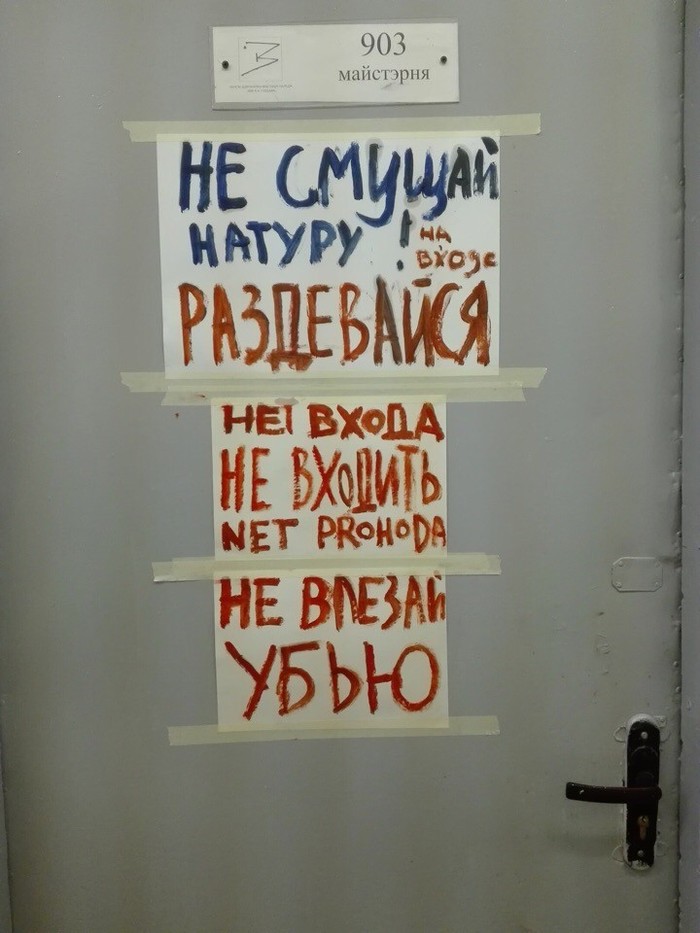 903
майстэрня
НЕ СМУЩАЙ
НАТУРУ !
НА
ВХОДЕ
РАЗДЕВАЙСЯ
НЕТ ВХОДА
НЕ ВХОДИТЬ
NET PROHODA
НЕ ВЛЕЗАЙ
УБЬЮ